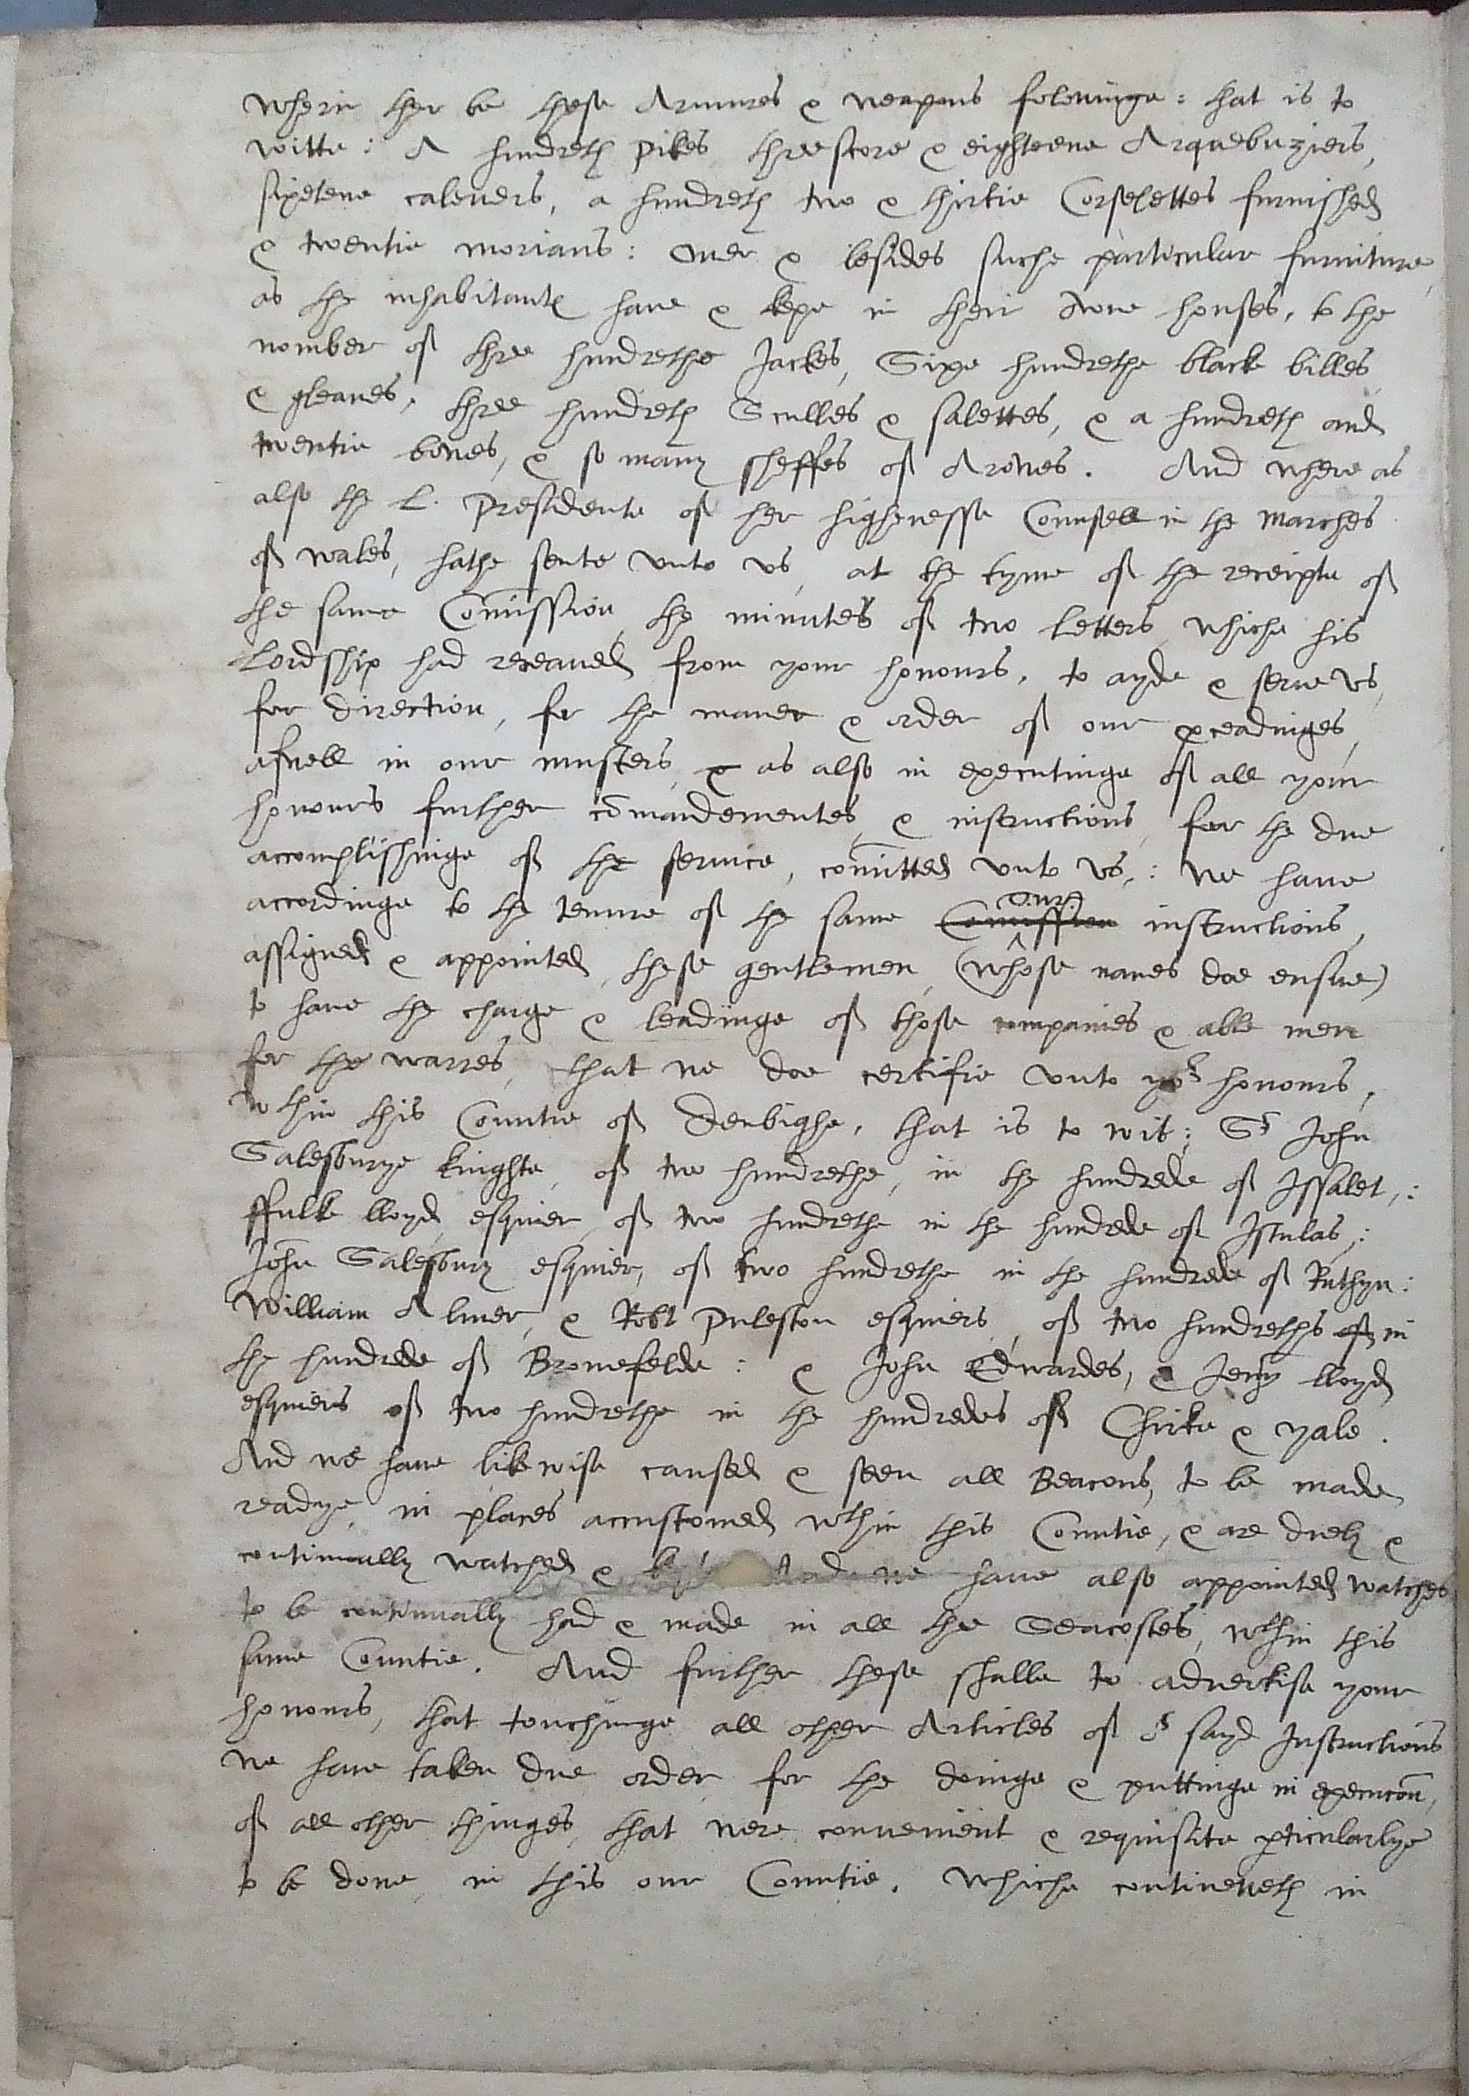 wherin ther be these Armures & weapons folowinge : that is to
witte : A hundreth pikes, threscore & eighteene Arquebuziers,
sixetene caleuers, a hundreth two & thirtie Corselettes furnished
& twentie morians : Ouer & besides suche particular furniture,
as the inhabitantes haue & kepe in their owne houses, to the
nomber of three hundrethe Jackes, Sixe hundrethe black billes
& gleaues, three hundreth Sculles & salettes, & a hundreth and
twentie bowes, & so many sheffes of Arowes. And where as
also the L. Presidente of her highenesse Counsell in the Marches
of Wales, hathe sente vnto vs, at the tyme of the receipte of
the same Comission, the minutes of two letters, whiche his
Lordship had receaued from your honours, to ayde & serue vs,
for direction, for the maner & order of our pceadinges,
aswell in our musters, & as also in executinge of all your
honours further comandementes, & instructions, for the due
accomplishinge of the seruice, comitted vnto vs, : We haue
accordinge to the tenure of the same Comission our instructions,
assigned & appointed, these gentlemen, (whose names doe ensue)
to haue the charge & leadinge of those companies & able men
for the warres, that we doe certifie vnto yor honours,
wthin this Countie of Denbighe, that is to wit : Sr John
Salesburye knighte, of two hundrethe, in the hundrede of Issalet, :
ffulke lloyd, esquier, of two hundrethe in the hundrede of Isulas, :
John Salesbury esquier, of two hundrethe in the hundrede of Ruthyn :
William Almer, & Robt Puleston esquiers, of two hundreths of in
the hundrede of Bromefelde : & John Edwardes, & Jeuan lloyd,
esquiers of two hundrethe in the hundredes of Chirke & yale.
And we haue likewise caused & seen all Beacons, to be made
readye, in places accustomed wthin this Countie, & are duely &
continually watched & And we haue also appointed watches
to be continually had & made in all the Seacostes, wthin this
same Countie. And further these shalle to aduertise your
honours, that touchinge all other Articles of sayd Instructions
we haue taken due order, for the doinge & puttinge in execucon,
of all other thinges, that were conuenient & requisite pticularlye
to be done, in this our Countie. Whiche contineweth in